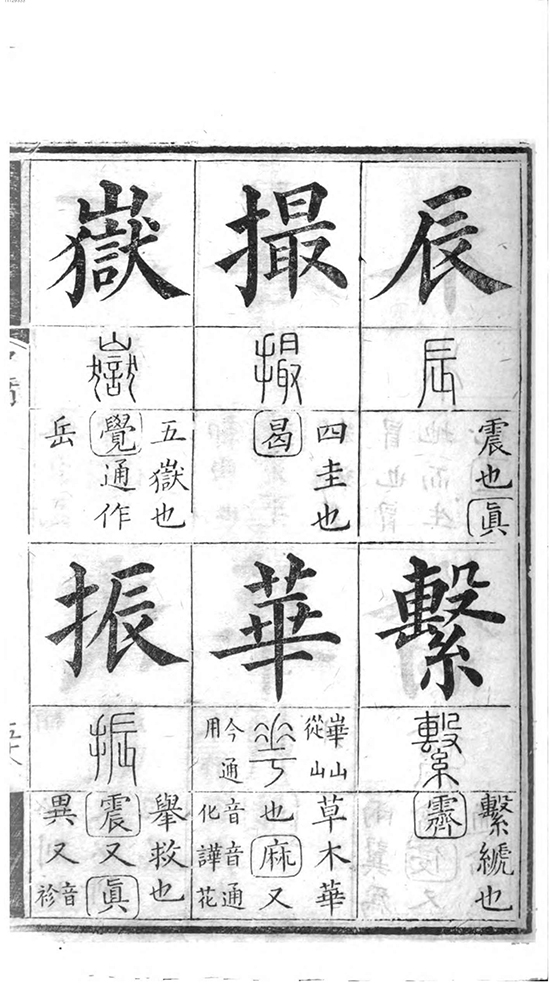 辰
辰
震也眞
繫
繫
繫𦃇也
霽
撮
撮
四圭也
曷
華
崋山
從山
華
今通
用
草木華
也麻又
音化音譁通花
嶽
嶽
五嶽也
覺通作
岳
振
振
舉救也
震又眞
異又音袗